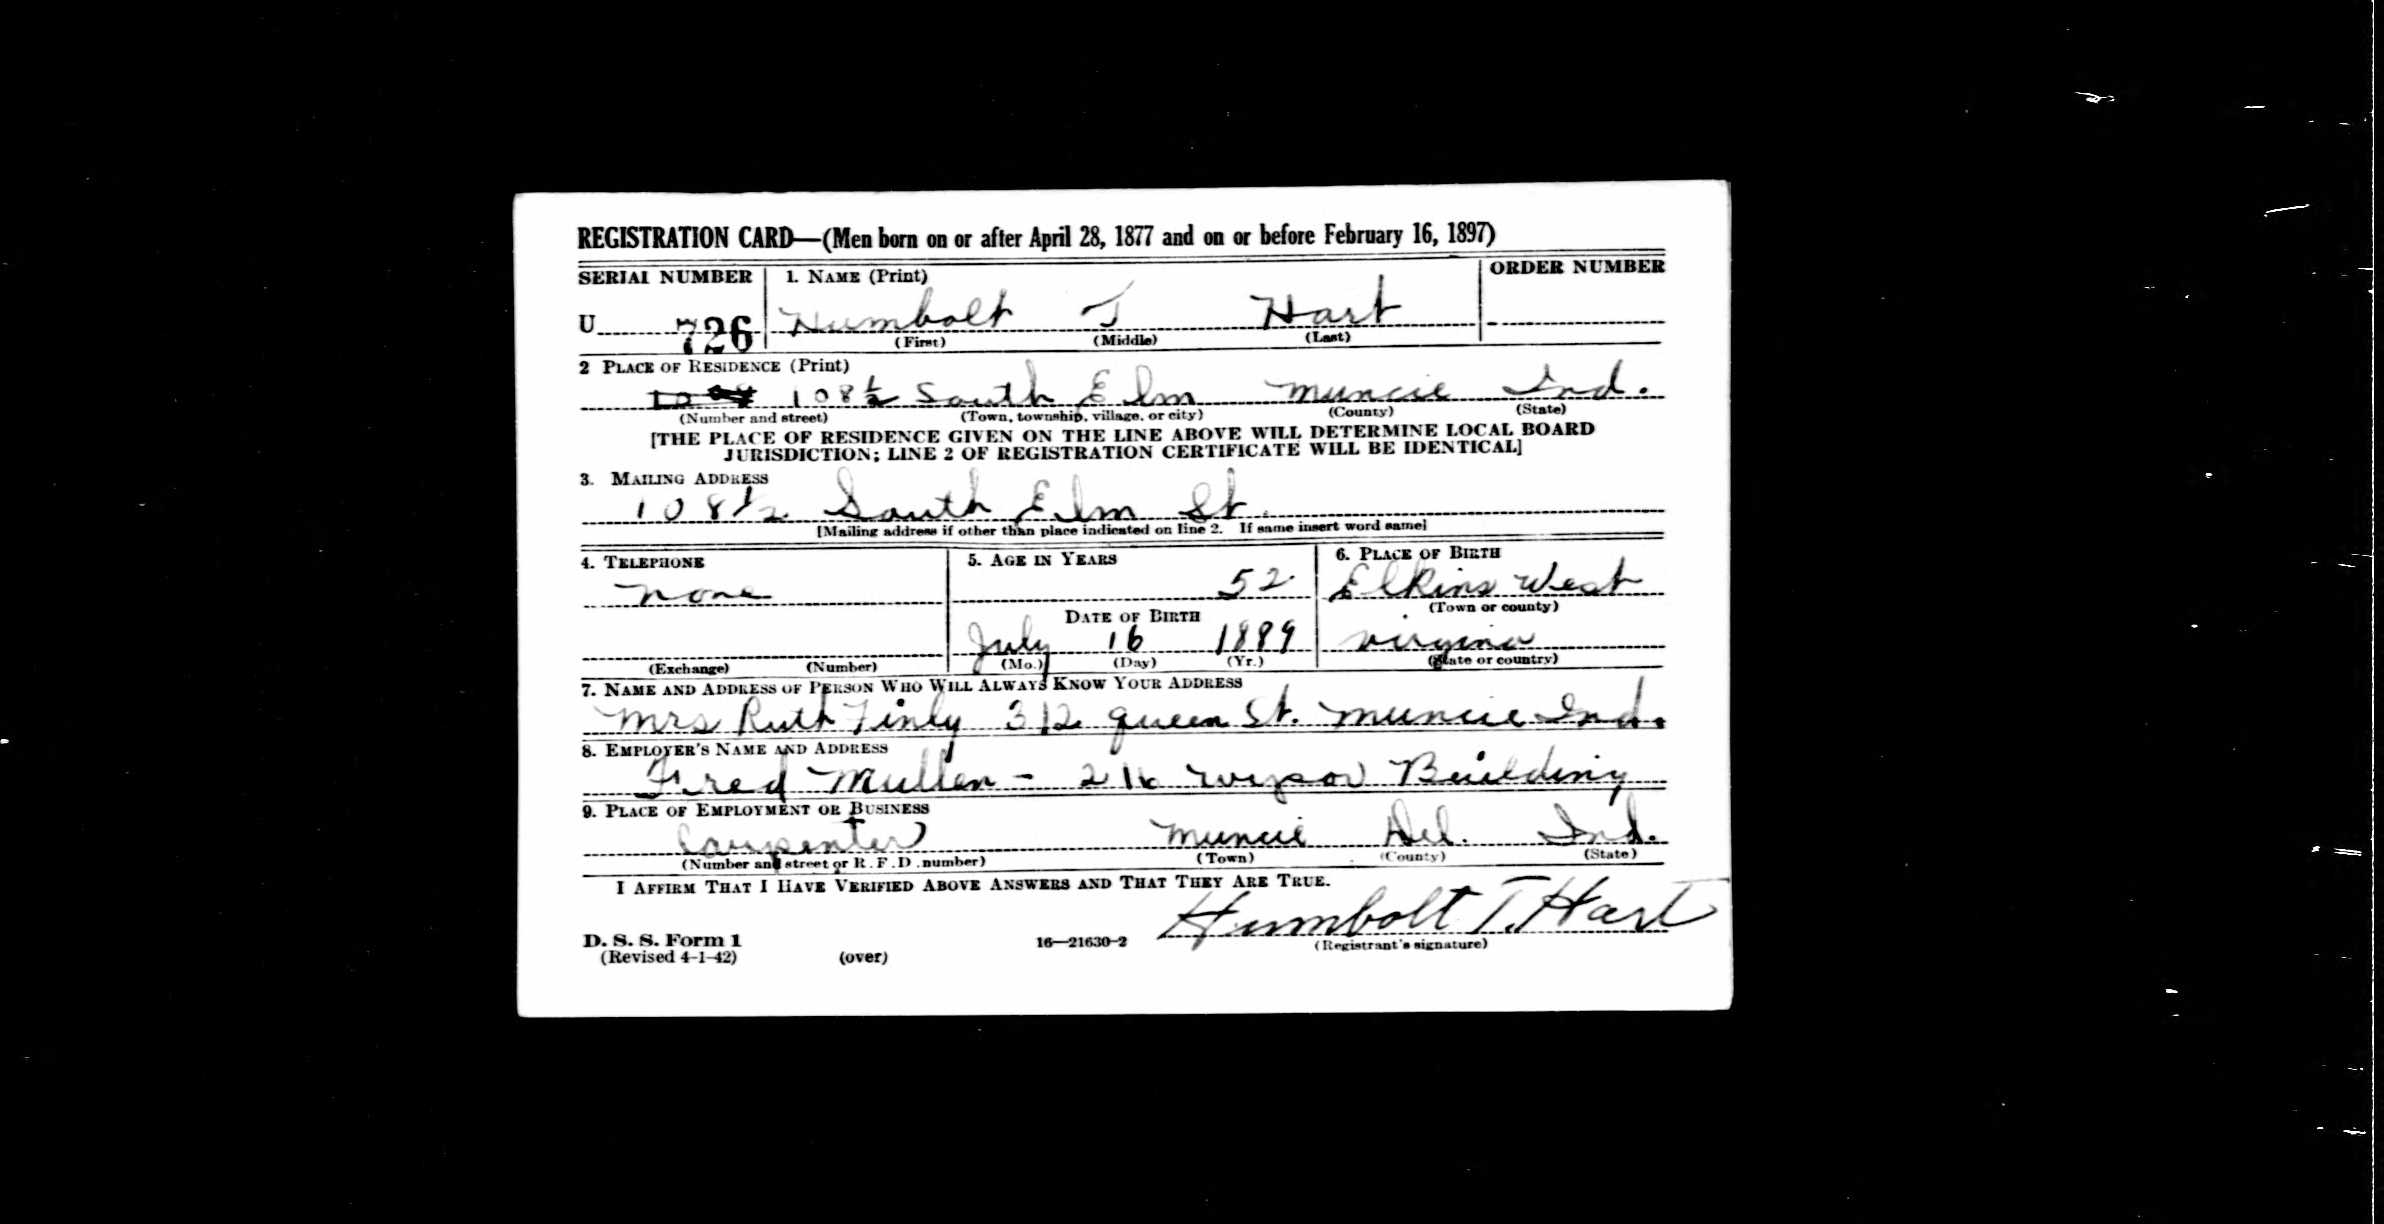 REGISTRATION CARD—(Men born on or after April 28, 1877 and on or before February 16, 1897)
SERIAL NUMBER 1. NAME (Print) ORDER NUMBER
U 726 Humbolt T Hart
(First) (Middle) (Last)
2 PLACE OF RESIDENCE (Print)
108½ South Elm Muncie Ind.
(Number and street) (Town, township, village, or city) (County) (State)
[THE PLACE OF RESIDENCE GIVEN ON THE LINE ABOVE WILL DETERMINE LOCAL BOARD
JURISDICTION; LINE 2 OF REGISTRATION CERTIFICATE WILL BE IDENTICAL]
3. MAILING ADDRESS
108½ South Elm St.
[Mailing address if other than place indicated on line 2. If same insert word same]
4. TELEPHONE 5. AGE IN YEARS 6. PLACE OF BIRTH
none 52 Elkins West
DATE OF BIRTH (Town or county)
July 16 1889 virginia
(Exchange) (Number) (Mo.) (Day) (Yr.) (State or country)
7. NAME AND ADDRESS OF PERSON WHO WILL ALWAYS KNOW YOUR ADDRESS
Mrs Ruth Finly 312 queen St. Muncie Ind.
8. EMPLOYER'S NAME AND ADDRESS
Fred Mullen - 216 Wysor Building
9. PLACE OF EMPLOYMENT OR BUSINESS
Carpenter Muncie Del. Ind.
(Number and street or R. F. D. number) (Town) (County) (State)
I AFFIRM THAT I HAVE VERIFIED ABOVE ANSWERS AND THAT THEY ARE TRUE.
Humbolt T. Hart
D. S. S. Form 1 16—21630-2 (Registrant's signature)
(Revised 4-1-42) (over)